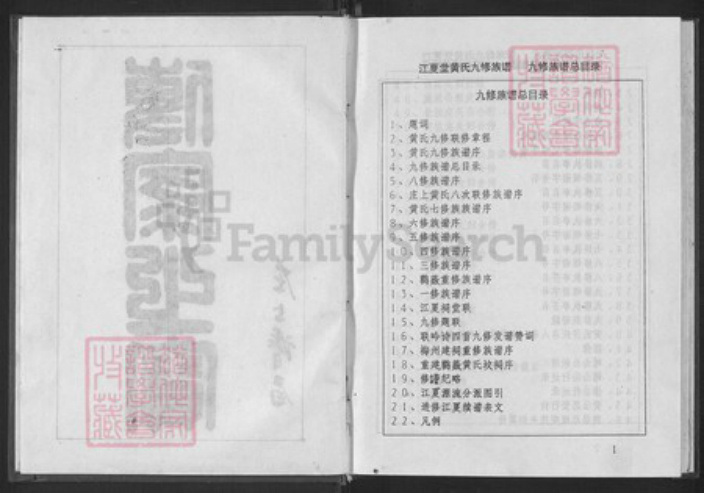 江夏堂黄氏九修族谱 九修族谱总目录
九修族谱总目录
1、题词
2、黄氏九修联修章程
3、黄氏九修族谱序
4、九修族谱总目录
5、八修族谱序
6、庄上黄氏八次联修族谱序
7、黄氏七修族谱序
8、六修族谱序
9、五修族谱序
10、四修族谱序
11、三修族谱序
12、鹳磊重修族谱序
13、一修族谱序
14、江夏祠堂联
15、九修题联
16、联吟诗四首九修发谱赞词
17、梅州建祠重修族谱序
18、重建鹳磊黄氏坟祠序
19、修谱纪略
20、江夏源流分派图引
21、进修江夏续谱表文
22、凡例
1
FamilySearch